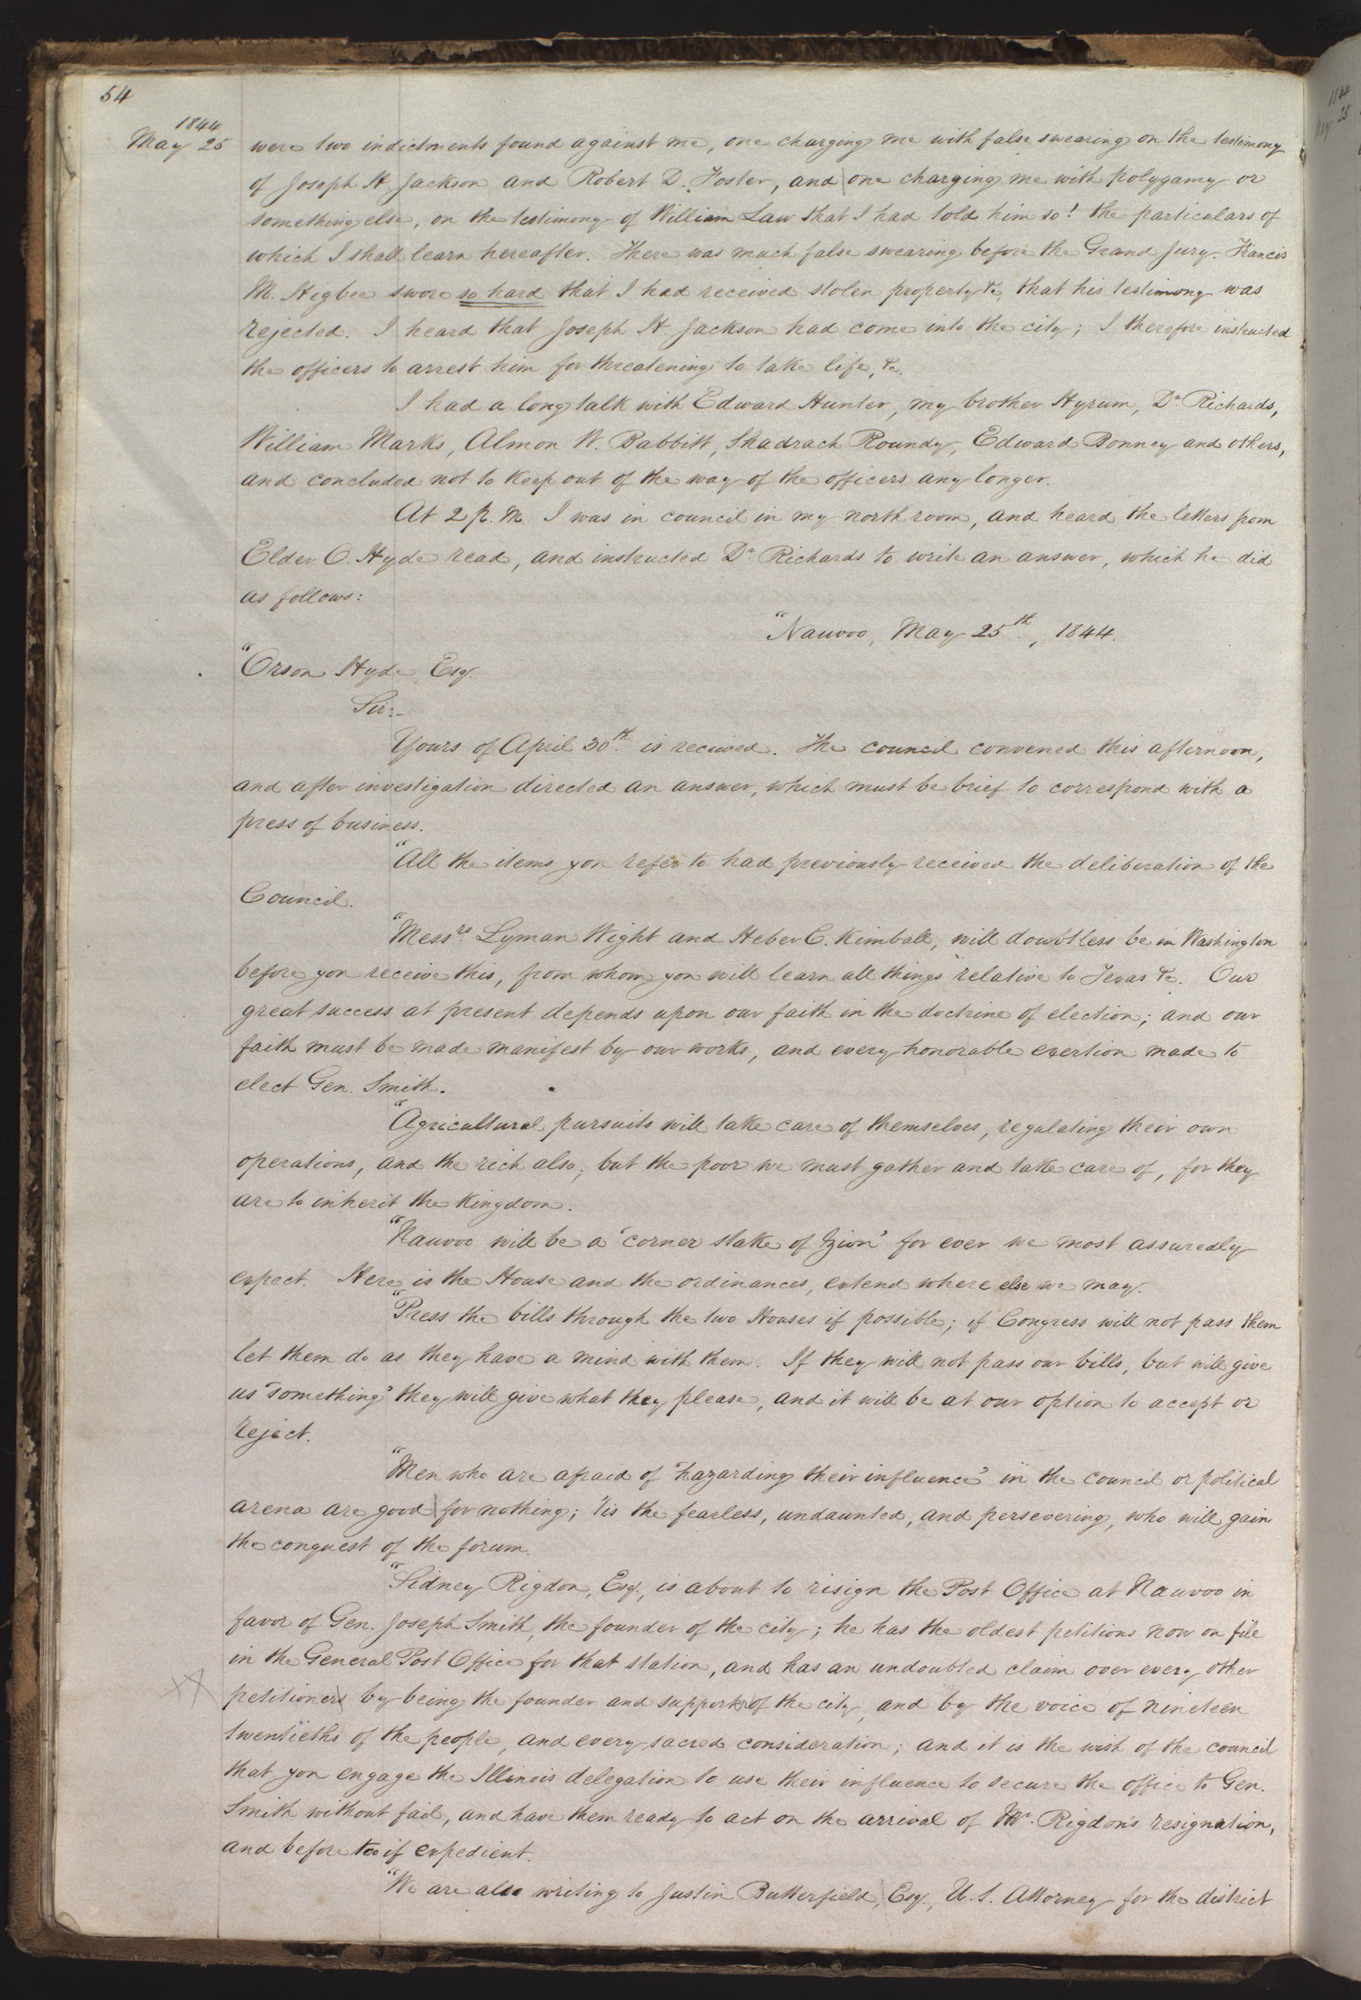 54
1844
May 25
were two indictments found against me, one charging me with false swearing on the testimony
of Joseph H. Jackson and Robert D. Foster, and one charging me with polygamy or
something else, on the testimony of William Law that I had told him so! the particulars of
which I shall learn hereafter. There was much false swearing before the Grand Jury. Francis
M. Higbee swore so hard that I had received stolen property &c, that his testimony was
rejected. I heard that Joseph H. Jackson had come into the city; I therefore instructed
the officers to arrest him for threatening to take life, &c.
I had a long talk with Edward Hunter, my brother Hyrum, Dr. Richards,
William Marks, Almon W. Babbitt, Shadrach Roundy, Edward Bonney and others,
and concluded not to keep out of the way of the officers any longer.
At 2 p. m. I was in council in my north room, and heard the letters from
Elder O. Hyde read, and instructed Dr. Richards to write an answer, which he did
as follows:
"Nauvoo, May 25th., 1844.
"Orson Hyde, Esq.
Sir:-
Yours of April 30th. is received. The council convened this afternoon,
and after investigation directed an answer, which must be brief to correspond with a
press of business.
"All the items you refer to had previously received the deliberation of the
Council.
"Messrs. Lyman Wight and Heber C. Kimball, will doubtless be in Washington
before you receive this, from whom you will learn all things relative to Texas &c. Our
great success at present depends upon our faith in the doctrine of election; and our
faith must be made manifest by our works, and every honorable exertion made to
elect Gen. Smith.
"Agricultural pursuits will take care of themselves, regulating their own
operations, and the rich also; but the poor we must gather and take care of, for they
are to inherit the kingdom.
"Nauvoo will be a 'corner stake of Zion' for ever we most assuredly
expect. Here is the House and the ordinances, extend where else we may.
"Press the bills through the two Houses if possible; if Congress will not pass them
let them do as they have a mind with them. If they will not pass our bills, but will give
us 'something' they will give what they please, and it will be at our option to accept or
reject.
"Men who are afraid of 'hazarding their influence' in the council or political
arena are good for nothing; 'tis the fearless, undaunted, and persevering, who will gain
the conquest of the forum.
"Sidney Rigdon, Esq., is about to risign the Post Office at Nauvoo in
favor of Gen. Joseph Smith, the founder of the city; he has the oldest petitions now on file
in the General Post Office for that station, and has an undoubted claim over every other
petitioners by being the founder and supporter of the city, and by the voice of nineteen
twentieths of the people, and every sacred consideration; and it is the wish of the council
that you engage the Illinois delegation to use their influence to secure the office to Gen.
Smith without fail, and have them ready to act on the arrival of Mr. Rigdon's resignation,
and before too if expedient.
"We are also writing to Justin Butterfield, Esq., U. S. Attorney for the district